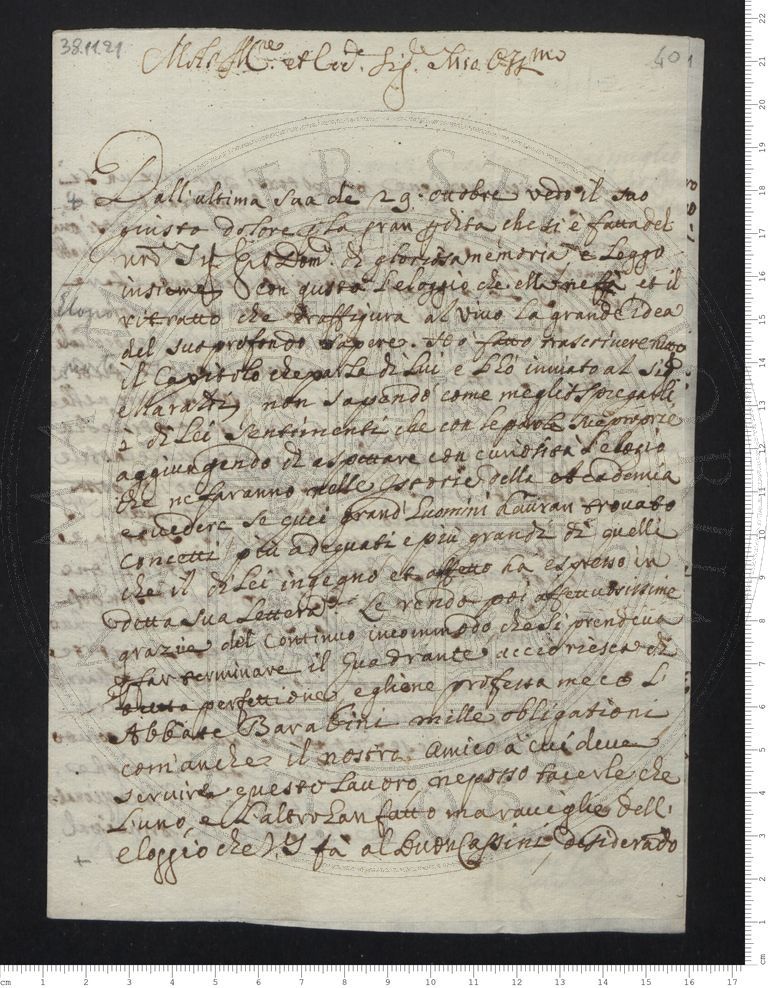 38.11.21
40
Molto Ill.re et Ecc.te Sig.re Mio Oss.mo
Dall'ultima sua de 29. ottobre vedo il suo
giusto dolore p la gran pdita che si è fatta del
nro Sig. Gio Dom.co di gloriosa memoria, e leggo
insieme con gusto l'eloggio che ella ne fà et il
ritratto che raffigura al vivo la grande idea
del suo profondo sapere. Ho fatto trascrivere tutto
il Capitolo che parla di Lui e l'hò inviato al Sig.r
Maraldi, non sapendo come meglio spiegarli
i di Lei sentimenti che con le parole sue proprie
aggiungendo di aspettare con curiosità l'elogio
che ne faranno nelle Istorie della Accademia
e vedere se quei grand'Luomini hauran trovato
concetti più adeguati e più grandi di quelli
che il di Lei ingegno et affetto ha espresso in
detta sua lettera. Le rendo poi affettuosissime
grazie del continuo incommodo che si prende in
far terminare il Quadrante accio riesca di
tutta perfettione, e gliene professa meco L'
Abbate Barabini mille obligationi
com'anche il nostro Amico à cui deve
servire questo lavoro, ne posso tacerle che
l'uno, e l'altro han fatto maraviglie dell'
eloggio che V.S. fà al buon Cassini, desiderado